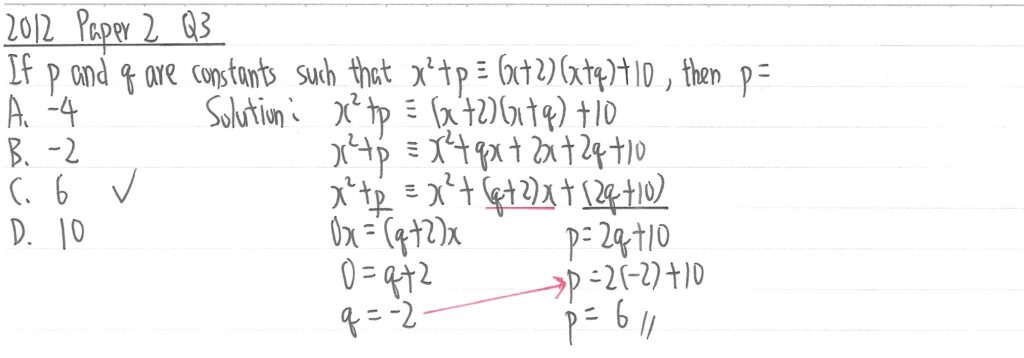 2012 Paper 2 Q3
If p and q are constants such that x²+p ≡ (x+2)(x+q)+10, then p=
A. -4 Solution: x²+p ≡ (x+2)(x+q)+10
B. -2 x²+p ≡ x²+qx+2x+2q+10
C. 6 ✓ x²+p ≡ x²+(q+2)x+(2q+10)
D. 10 0x=(q+2)x p=2q+10
0=q+2 p=2(-2)+10
q=-2 p=6//